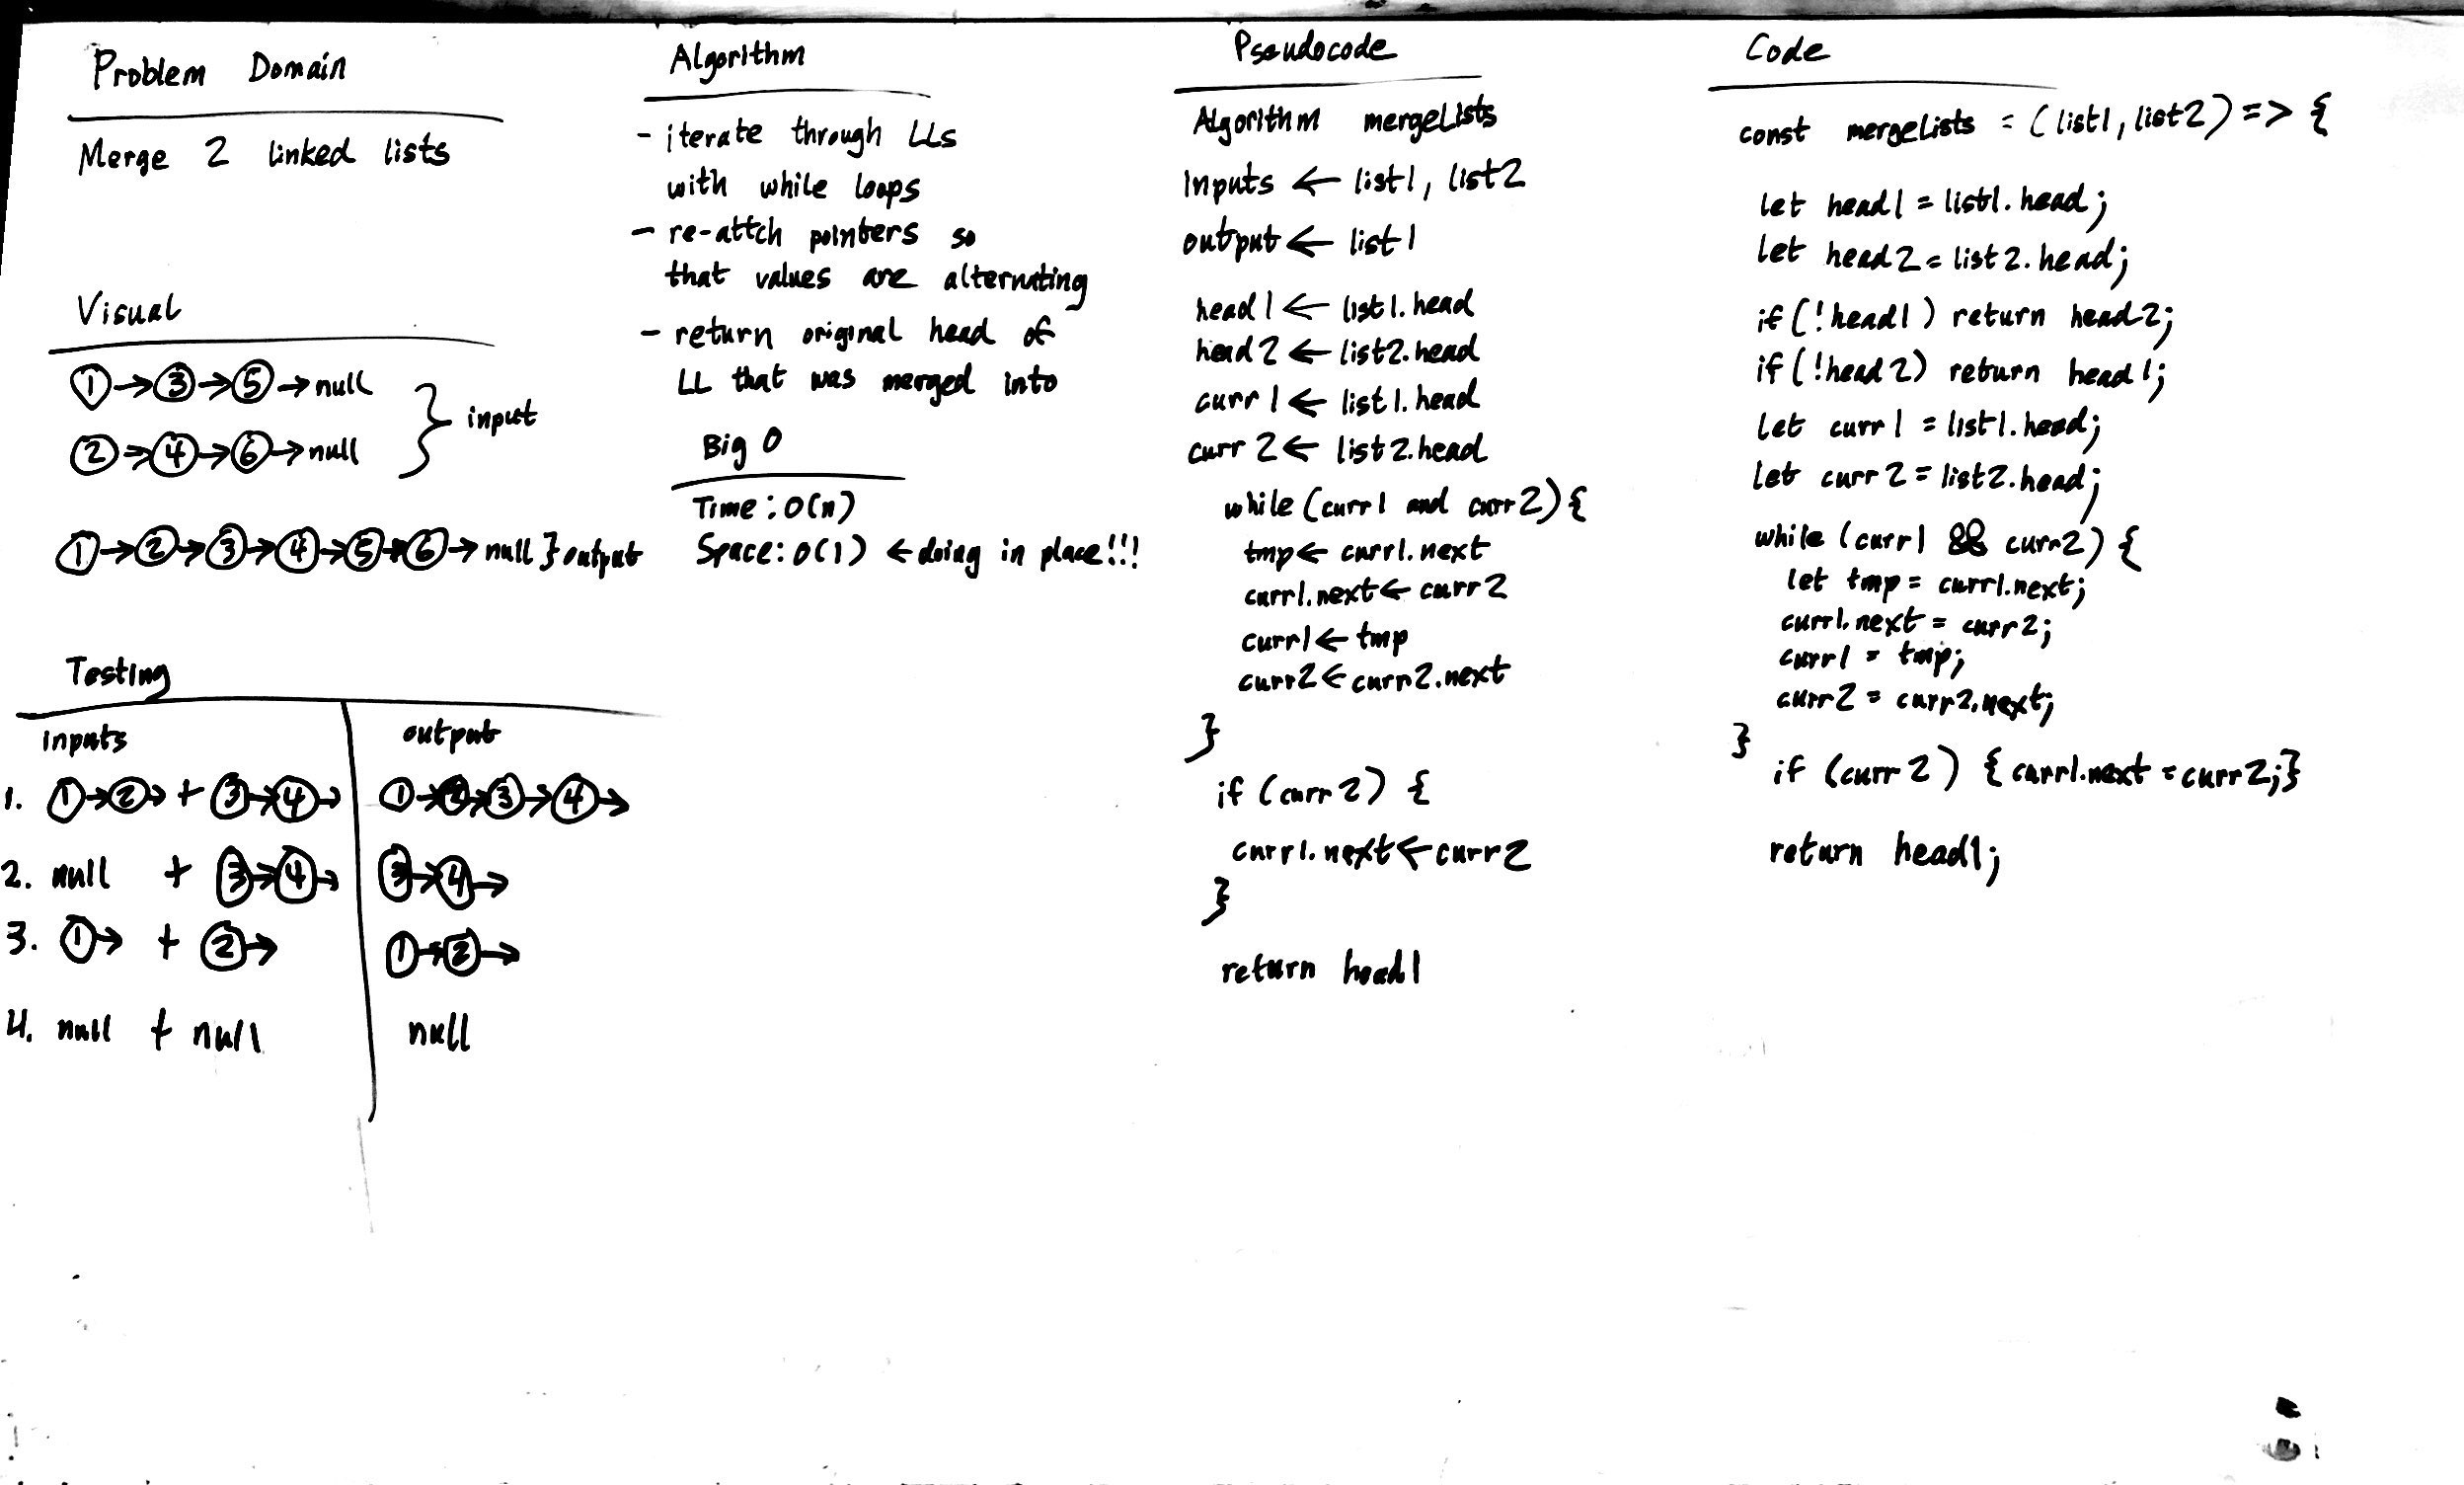 Problem Domain
Merge 2 linked lists
Visual
1 → 3 → 5 → null
2 → 4 → 6 → null
} input
1 → 2 → 3 → 4 → 5 → 6 → null } output
Testing
inputs
output
1. 1 → 2 → + 3 → 4 →
1 → 2 → 3 → 4 →
2. null + 3 → 4 →
3 → 4 →
3. 1 → + 2 →
1 → 2 →
4. null + null
null
Algorithm
- iterate through LLs
with while loops
- re-attch pointers so
that values are alternating
- return original head of
LL that was merged into
Big O
Time: O(n)
Space: O(1) ← doing in place!!!
Pseudocode
Algorithm mergeLists
Inputs ← list1, list2
output ← list1
head1 ← list1.head
head2 ← list2.head
curr1 ← list1.head
curr2 ← list2.head
while (curr1 and curr2) {
tmp ← curr1.next
curr1.next ← curr2
curr1 ← tmp
curr2 ← curr2.next
}
if (curr2) {
curr1.next ← curr2
}
return head1
Code
const mergeLists = (list1, list2) => {
let head1 = list1.head;
let head2 = list2.head;
if (!head1) return head2;
if (!head2) return head1;
let curr1 = list1.head;
let curr2 = list2.head;
while (curr1 && curr2) {
let tmp = curr1.next;
curr1.next = curr2;
curr1 = tmp;
curr2 = curr2.next;
}
if (curr2) { curr1.next = curr2;}
return head1;